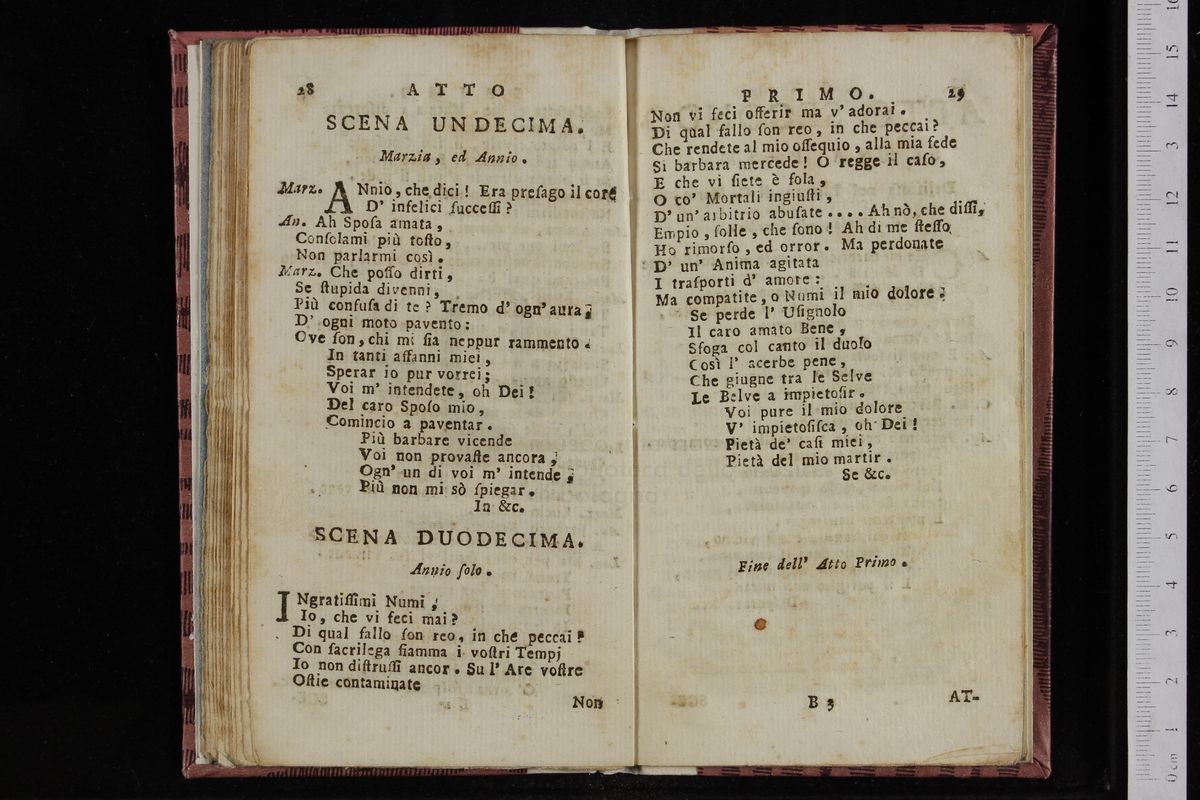 28 ATTO
SCENA UNDECIMA.
Marzia, ed Annio.
Marz. ANnio, che dici! Era preſago il core
D' infelici ſucceſſi?
An. Ah Spoſa amata,
Conſolami più toſto,
Non parlarmi così.
Marz. Che poſſo dirti,
Se ſtupida divenni,
Più confuſa di te? Tremo d' ogn' aura;
D' ogni moto pavento:
Ove ſon, chi mi ſia neppur rammento.
In tanti affanni miei,
Sperar io pur vorrei;
Voi m' intendete, oh Dei!
Del caro Spoſo mio,
Comincio a paventar.
Più barbare vicende
Voi non provaſte ancora;
Ogn' un di voi m' intende;
Più non mi sò ſpiegar.
In &c.
SCENA DUODECIMA.
Annio ſolo.
INgratiſſimi Numi,
Io, che vi feci mai?
Di qual fallo ſon reo, in che peccai?
Con ſacrilega fiamma i voſtri Tempj
Io non diſtruſſi ancor. Su l' Are voſtre
Oſtie contaminate
Non
PRIMO. 29
Non vi feci offerir ma v' adorai.
Di qual fallo ſon reo, in che peccai?
Che rendete al mio oſſequio, alla mia fede
Sì barbara mercede! O regge il caſo,
E che vi ſiete è fola,
O co' Mortali ingiuſti,
D' un' arbitrio abuſate .... Ah nò, che diſſi,
Empio, folle, che ſono! Ah di me ſteſſo
Ho rimorſo, ed orror. Ma perdonate
D' un' Anima agitata
I traſporti d' amore:
Ma compatite, o Numi il mio dolore:
Se perde l' Uſignolo
Il caro amato Bene,
Sfoga col canto il duolo
Così l' acerbe pene,
Che giugne tra le Selve
Le Belve a impietoſir.
Voi pure il mio dolore
V' impietoſiſca, oh Dei!
Pietà de' caſi miei,
Pietà del mio martir.
Se &c.
Fine dell' Atto Primo.
B 3
AT-
0 cm 1 2 3 4 5 6 7 8 9 10 11 12 13 14 15 16